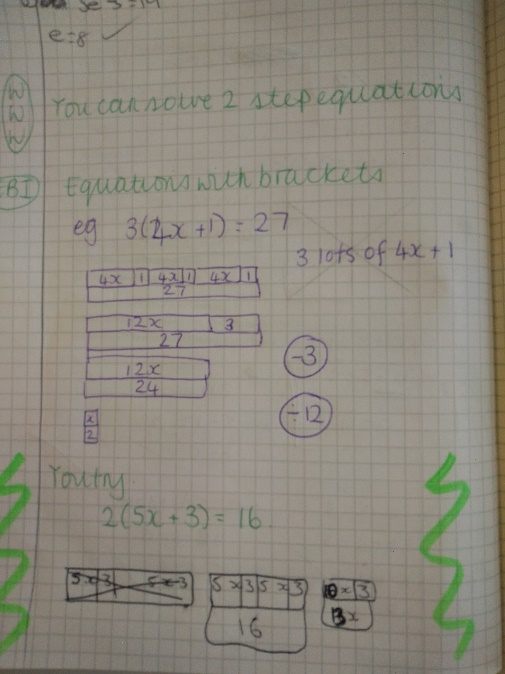 5e-5=19
e=8 ✓
WWW
You can solve 2 step equations
EBI
Equations with brackets
eg 3(4x+1)=27
3 lots of 4x+1
4x 1 4x 1 4x 1
27
12x 3
27
-3
12x
24
÷12
x
2
You try
2(5x+3)=16
5x 3 5x 3
5x 3 5x 3
16
x 3